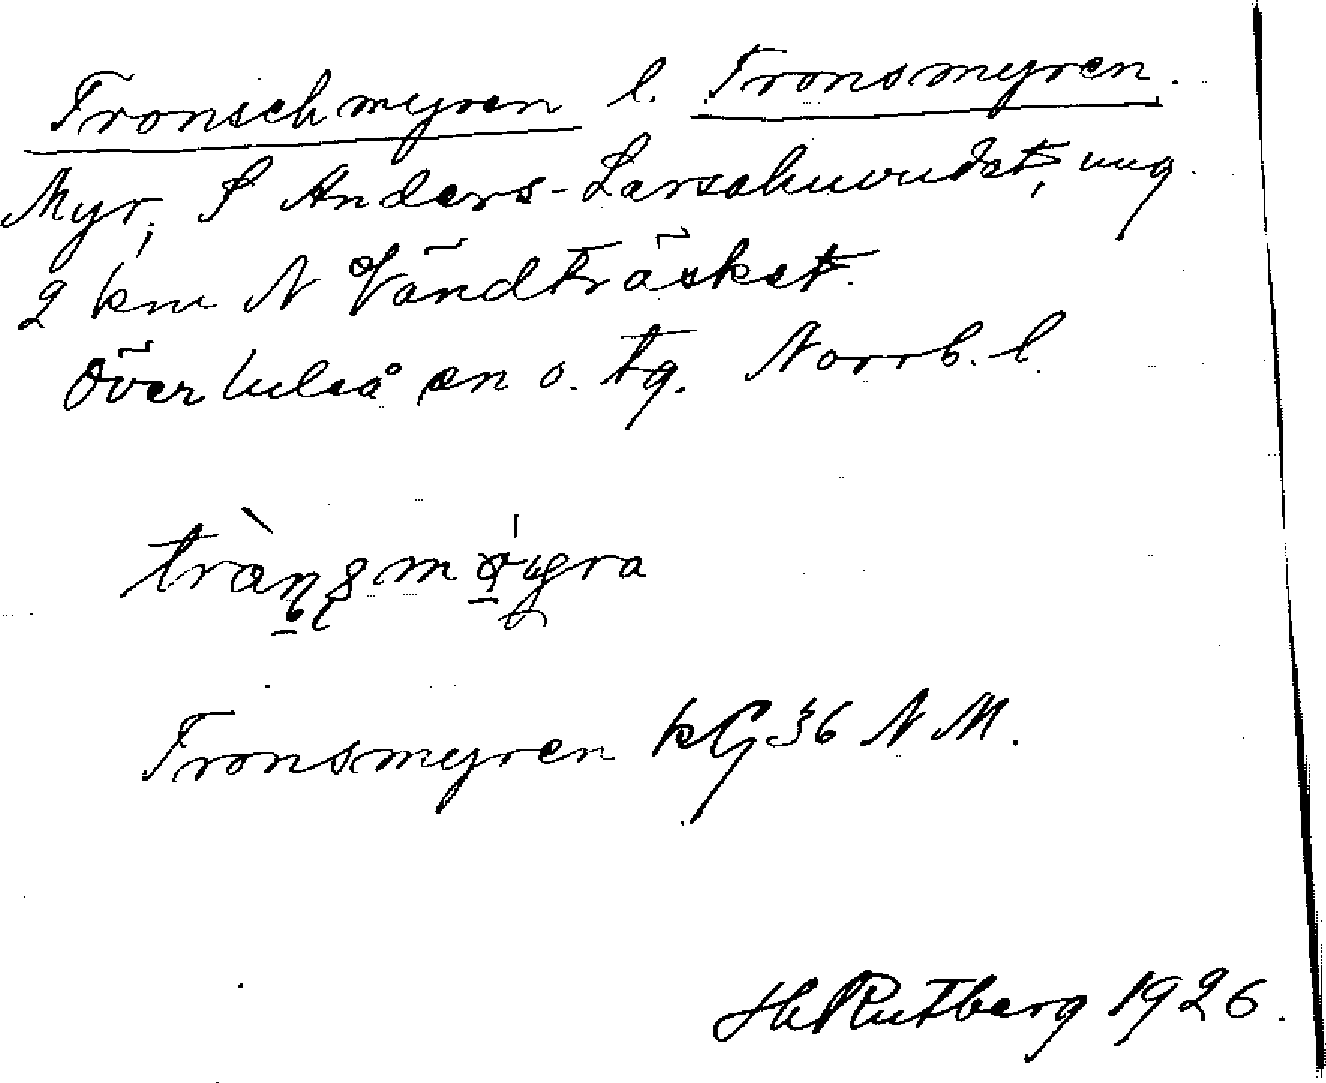 Tronsehmyren l. Tronsmyren.
Myr, S Anders-Larsahuvudet, ung.
2 km N Vändträsket.
Överluleå sn o. tg. Norrb. l.
Tronsmyren kG 36 N M.
H Rutberg 1926.